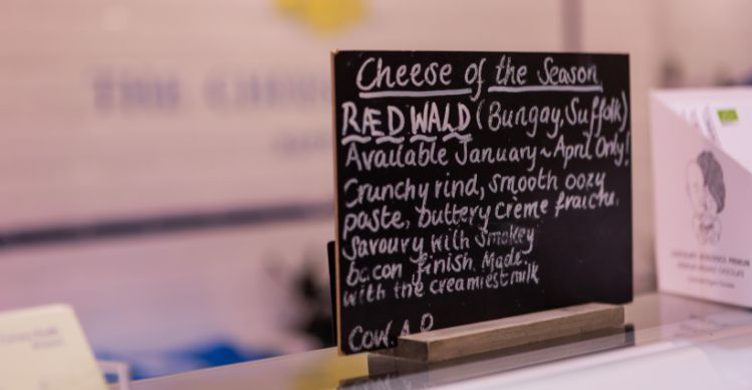 Cheese of the Season
RÆDWALD (Bungay, Suffolk)
Available January ~ April Only!
Crunchy rind, smooth oozy
paste, buttery crème fraiche.
Savoury with smokey
bacon finish. Made
with the creamiest milk
COW. A P